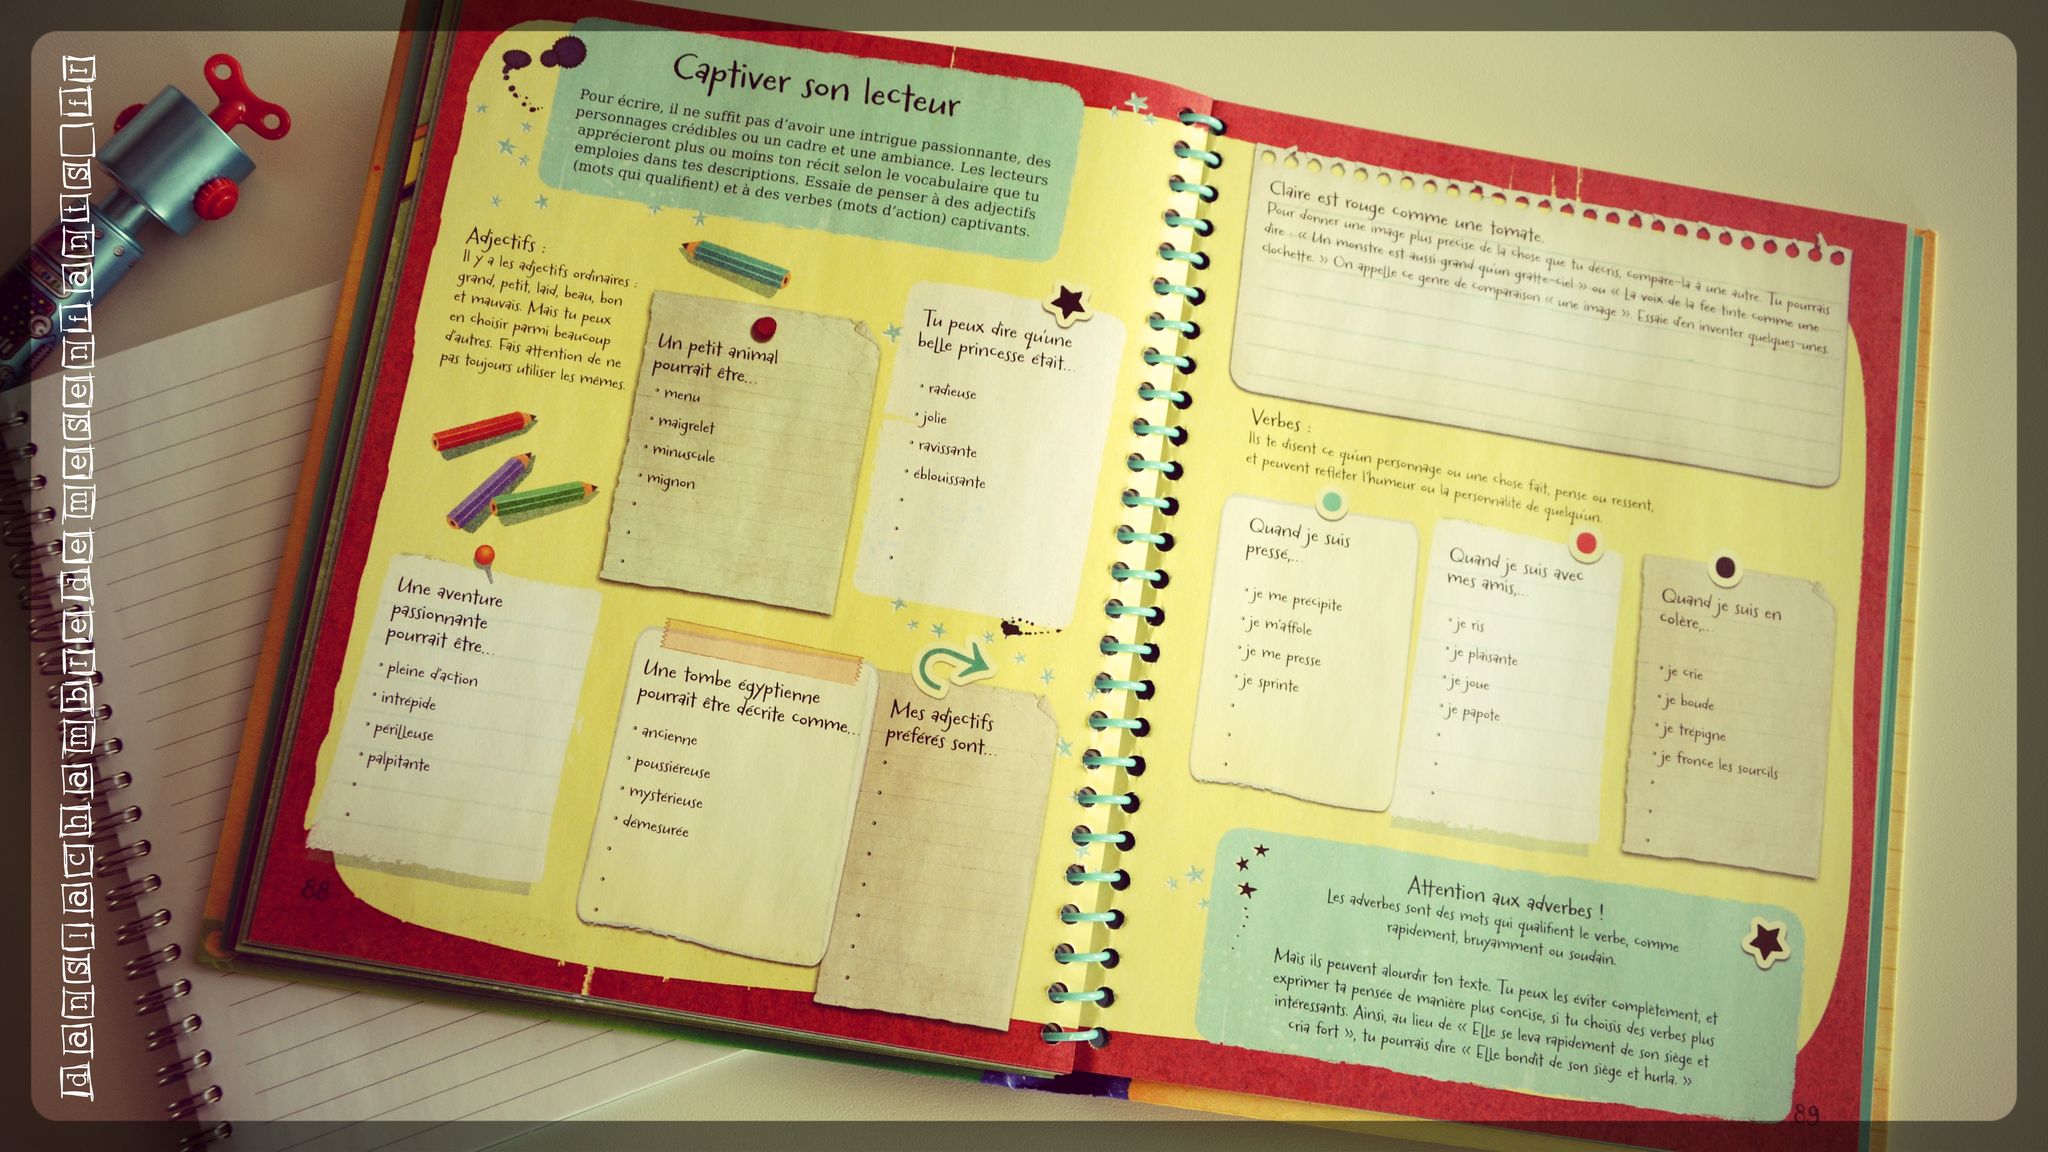 danslachambredemesenfants_fr
Captiver son lecteur
Pour écrire, il ne suffit pas d'avoir une intrigue passionnante, des
personnages crédibles ou un cadre et une ambiance. Les lecteurs
apprécieront plus ou moins ton récit selon le vocabulaire que tu
emploies dans tes descriptions. Essaie de penser à des adjectifs
(mots qui qualifient) et à des verbes (mots d'action) captivants.
Adjectifs :
Il y a les adjectifs ordinaires :
grand, petit, laid, beau, bon
et mauvais. Mais tu peux
en choisir parmi beaucoup
d'autres. Fais attention de ne
pas toujours utiliser les mêmes.
Un petit animal
pourrait être...
• menu
• maigrelet
• minuscule
• mignon
•
•
•
Tu peux dire qu'une
belle princesse était...
• radieuse
• jolie
• ravissante
• éblouissante
•
•
•
Une aventure
passionnante
pourrait être...
• pleine d'action
• intrépide
• périlleuse
• palpitante
•
•
Une tombe égyptienne
pourrait être décrite comme...
• ancienne
• poussiéreuse
• mystérieuse
• démesurée
•
•
•
Mes adjectifs
préférés sont...
•
•
•
•
•
•
•
•
88
Claire est rouge comme une tomate.
Pour donner une image plus précise de la chose que tu décris, compare-la à une autre. Tu pourrais
dire : « Un monstre est aussi grand qu'un gratte-ciel » ou « La voix de la fée tinte comme une
clochette. » On appelle ce genre de comparaison « une image ». Essaie d'en inventer quelques-unes.
Verbes :
Ils te disent ce qu'un personnage ou une chose fait, pense ou ressent,
et peuvent refléter l'humeur ou la personnalité de quelqu'un.
Quand je suis
pressé,...
• je me précipite
• je m'affole
• je me presse
• je sprinte
•
•
•
Quand je suis avec
mes amis,...
• je ris
• je plaisante
• je joue
• je papote
•
•
•
Quand je suis en
colère,...
• je crie
• je boude
• je trépigne
• je fronce les sourcils
•
•
•
Attention aux adverbes !
Les adverbes sont des mots qui qualifient le verbe, comme
rapidement, bruyamment ou soudain.
Mais ils peuvent alourdir ton texte. Tu peux les éviter complètement, et
exprimer ta pensée de manière plus concise, si tu choisis des verbes plus
intéressants. Ainsi, au lieu de « Elle se leva rapidement de son siège et
cria fort », tu pourrais dire « Elle bondit de son siège et hurla. »
89